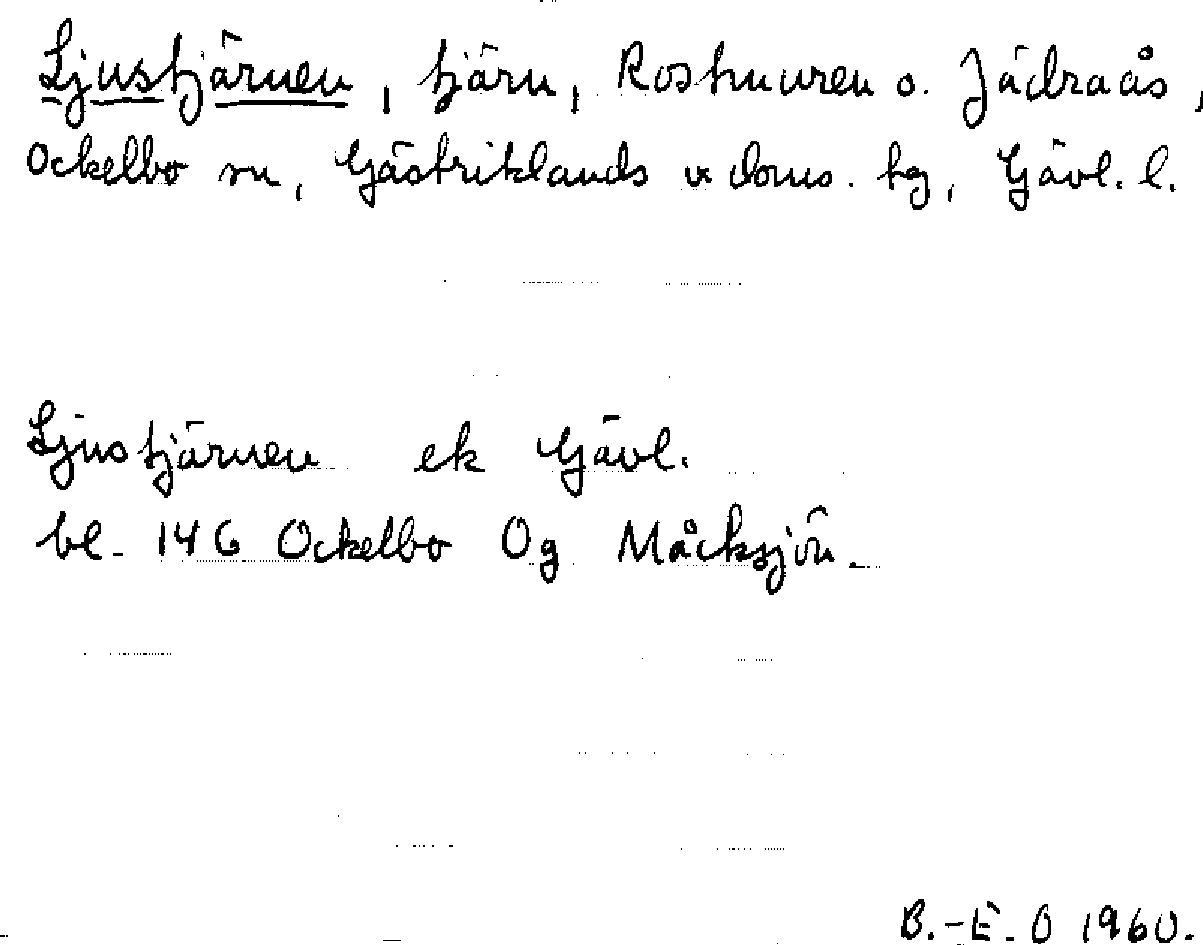 Ljustjärnen, tjärn, Rosknuren o. Jädraås,
Ockelbo sn, Gästriklands v doms. hg, Gävl. l.
Ljustjärnen ek Gävl.
bl. 146 Ockelbo Og Måcksjön.
B.-E. O 1960.